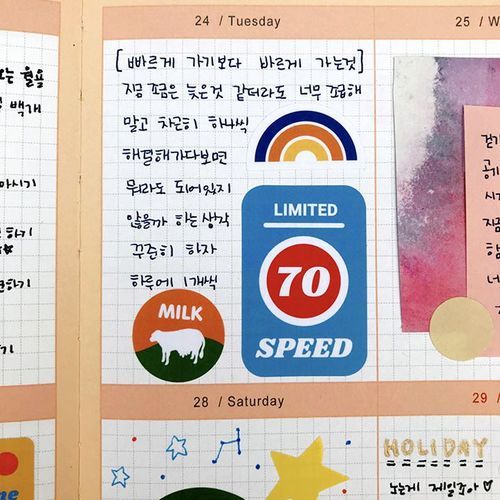 24 / Tuesday
[빠르게 가기보다 바르게 가는것]
지금 조금은 늦은것 같더라도 너무 조급해
말고 차근히 하나씩
해결해가다보면
뭐라도 되어있지
않을까 하는 생각
꾸준히 하자
하루에 1개씩
LIMITED
70
SPEED
MILK
25
28 / Saturday
29 /
HOLIDAY
노는게 제일좋아♡
백개
하기